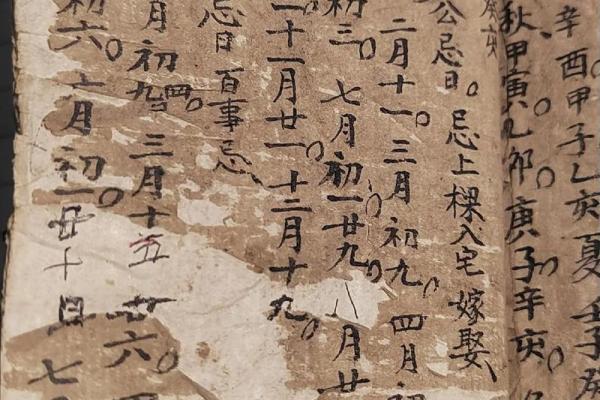 辛酉甲子乙亥夏壬子癸
秋甲寅。乙卯。庚子。辛亥。
公忌日。忌上棵入宅嫁娶
二月十一。三月初九。四月初
初三。七月初一廿九。八月廿
十一月廿一。十二月十九。
忌日 百事忌
月初九四。三月十五 廿六。
初六。七月初一。廿十日 七